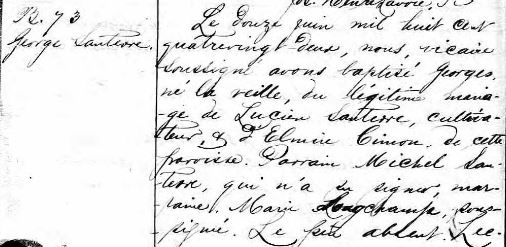 B. 73
George Santerre.
Le douze juin mil huit cent
quatrevingt-deux, nous, vicaire
soussigné avons baptisé Georges,
né la veille, du légitime maria-
-ge de Lucien Santerre, cultiva-
-teur, & d'Elmire Cimon de cette
paroisse. Parrain Michel San-
terre, qui n'a su signer, mar-
raine, Marie Longchamps, sous-
-signée. Le père absent. Lec-